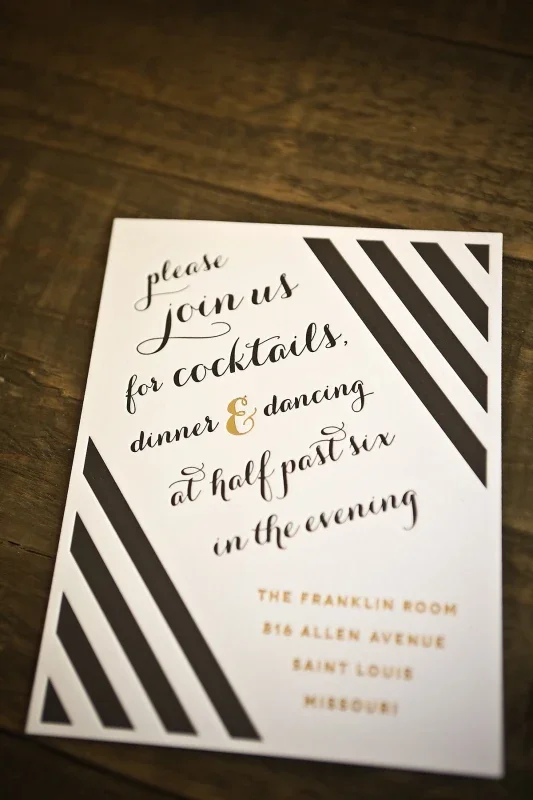 please
join us
for cocktails,
dinner & dancing
at half past six
in the evening
THE FRANKLIN ROOM
816 ALLEN AVENUE
SAINT LOUIS
MISSOURI